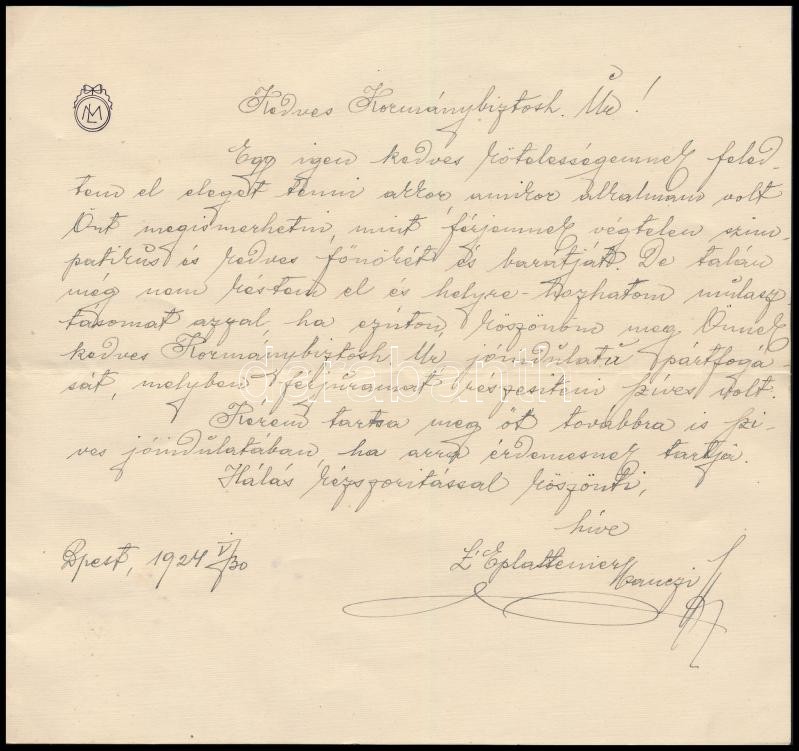 LM
Kedves Kormánybiztosh. Úr!
Egy igen kedves kötelességemnek feled-
tem el eleget tenni akkor amikor alkalmam volt
Önt megismerhetni, mint férjemnek végtelen szim-
patikus és kedves főnökét és barátját. De talán
még nem késtem el és helyre-hozhatom mulasz-
tásomat azzal, ha ezúton köszönöm meg Önnek
kedves Kormánybiztosh Úr, jóindulatú pártfogá-
sát, melyben féljúramat részesíteni szíves volt.
Kérem tartsa meg őt továbbra is szí-
ves jóindulatában, ha arra érdemesnek tartja.
Hálás kézszorítással köszönti,
híve
L'Eplattenier Manczi
Bpest, 1924 V/30
darabanth